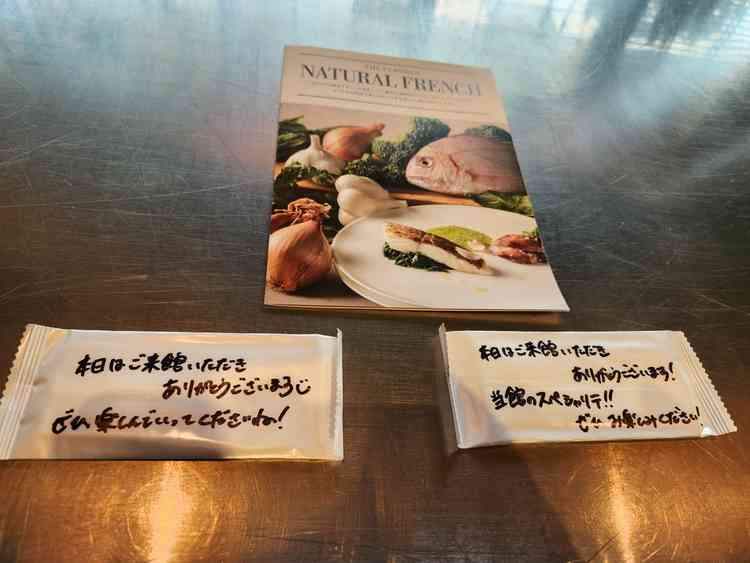 NATURAL FRENCH
本日はご来館いただき
ありがとうございまるじ
ぜひ楽しんでいってくださいね!
本日はご来館いただき
ありがとうございまる!
当館のスペシャリテ!!
ぜひお楽しみください!